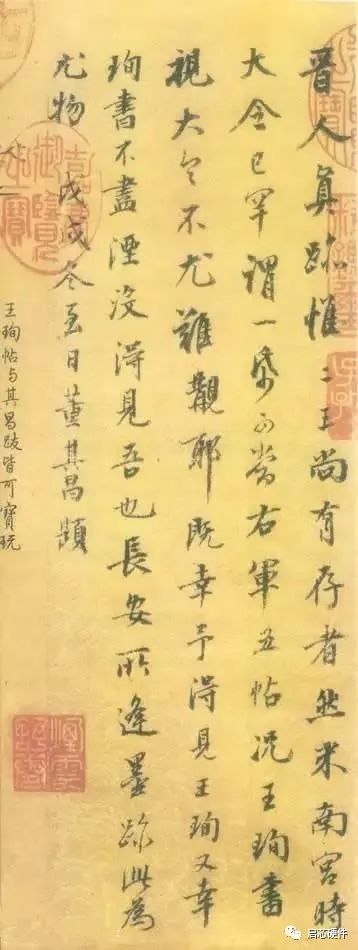 晋人真跡惟二王尚有存者然米南宮時
大令已罕謂一帋可當右軍五帖況王珣書
視大令不尤難覯耶既幸予得見王珣又幸
珣書不盡湮没得見吾也長安所逢墨跡此為
尤物 戊戌冬至日董其昌題
王珣帖与其昌跋皆可寶玩
嘉慶御覽之寶
启芯硬件